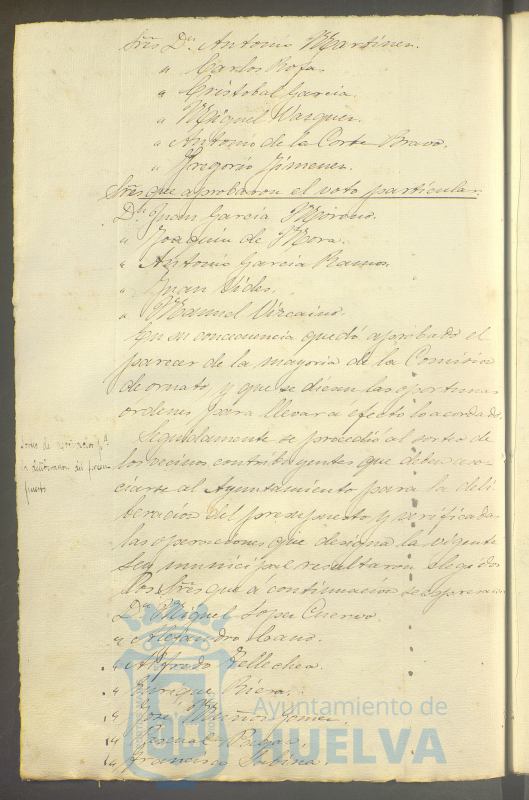 Sres Dn. Antonio Martinez.
" Carlos Rofa.
" Cristobal Garcia.
" Miguel Vazquez.
" Antonio de la Corte Bravo.
" Gregorio Jimenez.
Sres que aprobaron el voto particular.
Dn. Juan Garcia Morano.
" Joaquin de Mora.
" Antonio Garcia Ramos.
" Juan Vides.
" Manuel Vizcaino.
En su consecuencia quedó aprobado el
parecer de la mayoria de la Comision
de ornato y que se dieran las oportunas
ordenes para llevar á efecto lo acordado.
Seguidamente se procedió al sorteo de
los vecinos contribuyentes que deben aso-
ciarse al Ayuntamiento para la deli-
beracion del presupuesto y verificadas
las operaciones que designa la vigente
Ley municipal resultaron elegidos
los Sres que á continuacion se espresan
Sorteo de asociados pa.
la deliberacion del presu-
puesto
Dn. Miguel Lopez Cuervo
" Alejandro Cano.
" Alfredo Tellechea.
" Enrique Riera.
" José Muñoz Gomez.
" Pascual
" Francisco Sabina.
Ayuntamiento de
HUELVA